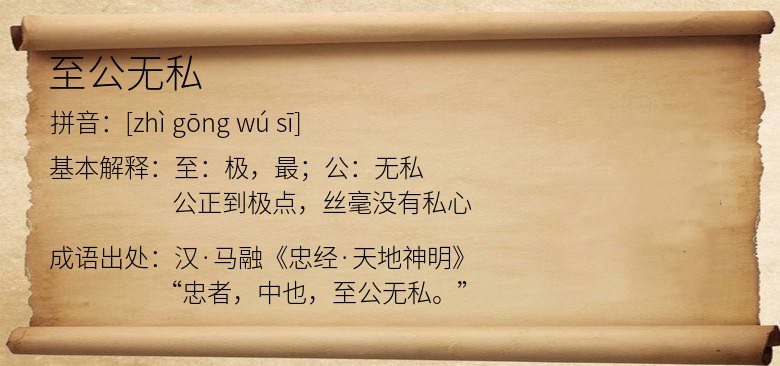 至公无私
拼音：[zhì gōng wú sī]
基本解释：至：极，最；公：无私
公正到极点，丝毫没有私心
成语出处：汉·马融《忠经·天地神明》
“忠者，中也，至公无私。”